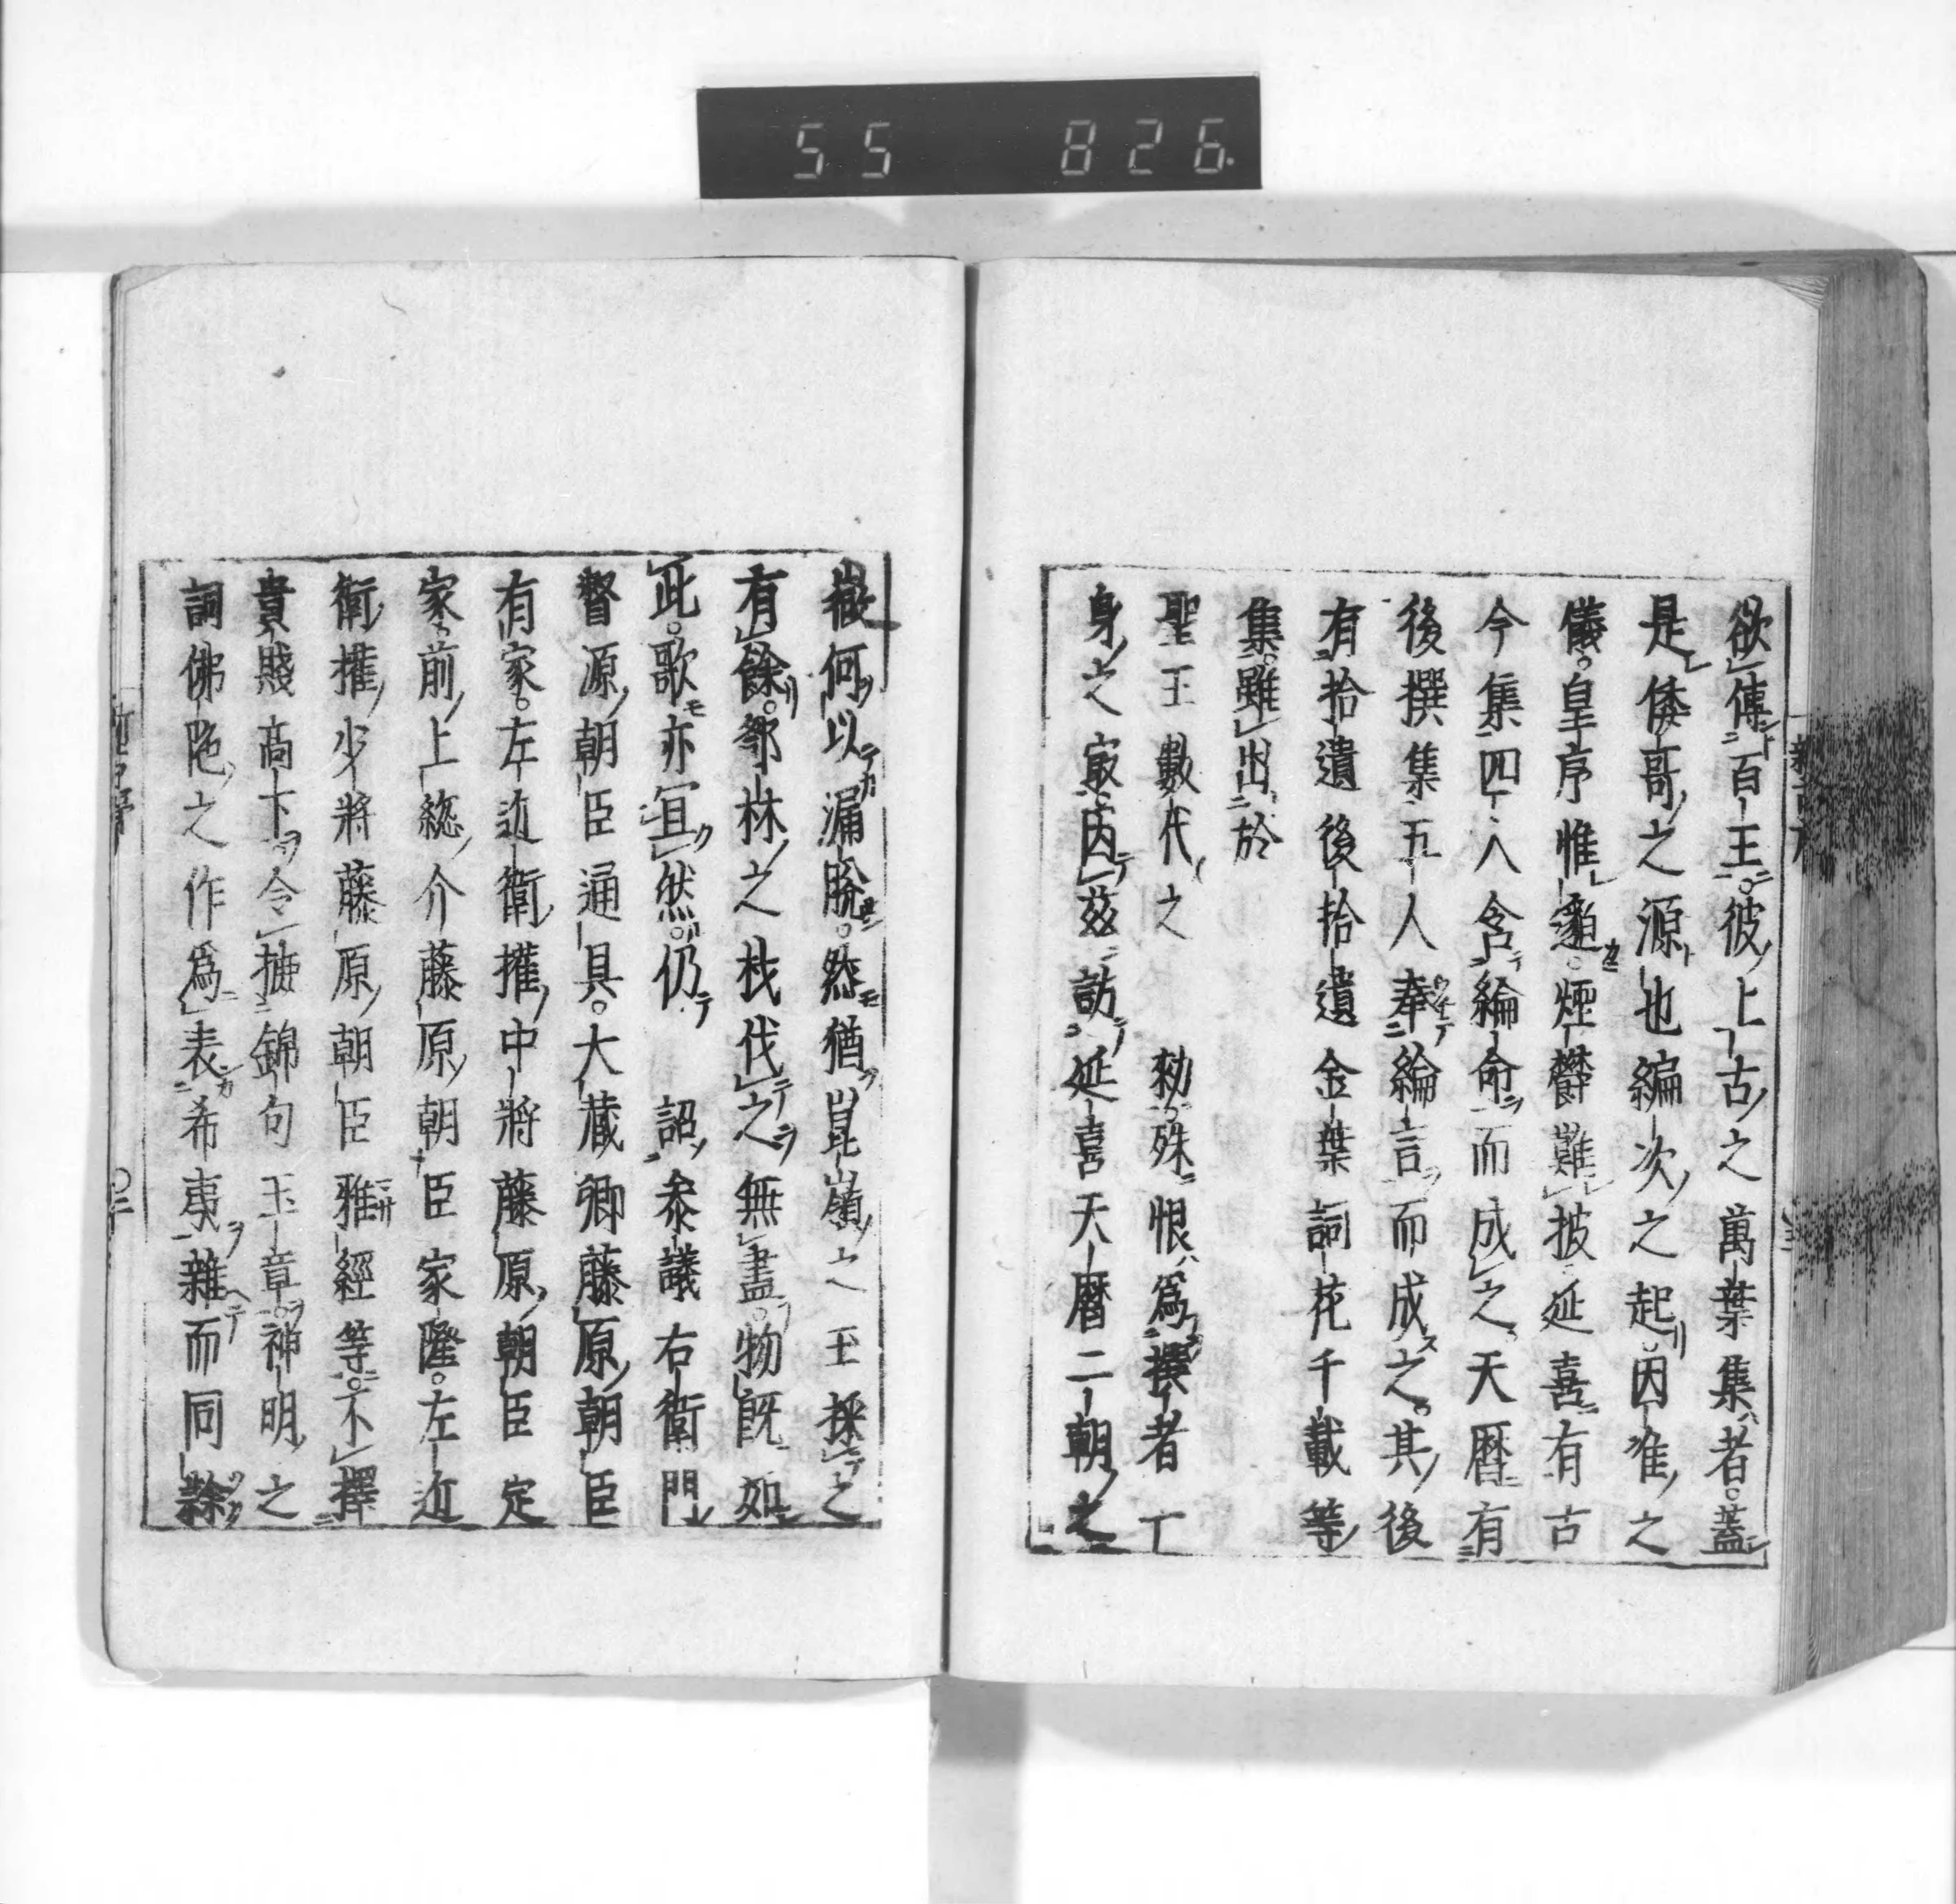 55 826
欲傳百王彼上古之萬葉集者蓋
是倭哥之源也編次之起因准之
儀皇序惟邈煙欝難披延喜有古
今集四人含綸命而成之天曆有
後撰集五人奉綸言而成之其後
有拾遺後拾遺金葉詞花千載等
集雖出於
聖王數代之 勅殊恨爲撰者一
身之最因茲訪延喜天曆二朝之
嶶何以漏脫然猶崑嶺之玉採之
有餘鄧林之材伐之無盡物既如
此歌亦冝然仍 詔參議右衛門
督源朝臣通具大藏卿藤原朝臣
有家左近衛權中將藤原朝臣定
家前上緫介藤原朝臣家隆左近
衛權少將藤原朝臣雅經等不擇
貴賤高下令摭錦句玉章神明之
詞佛陁之作爲表希夷雜而同隸